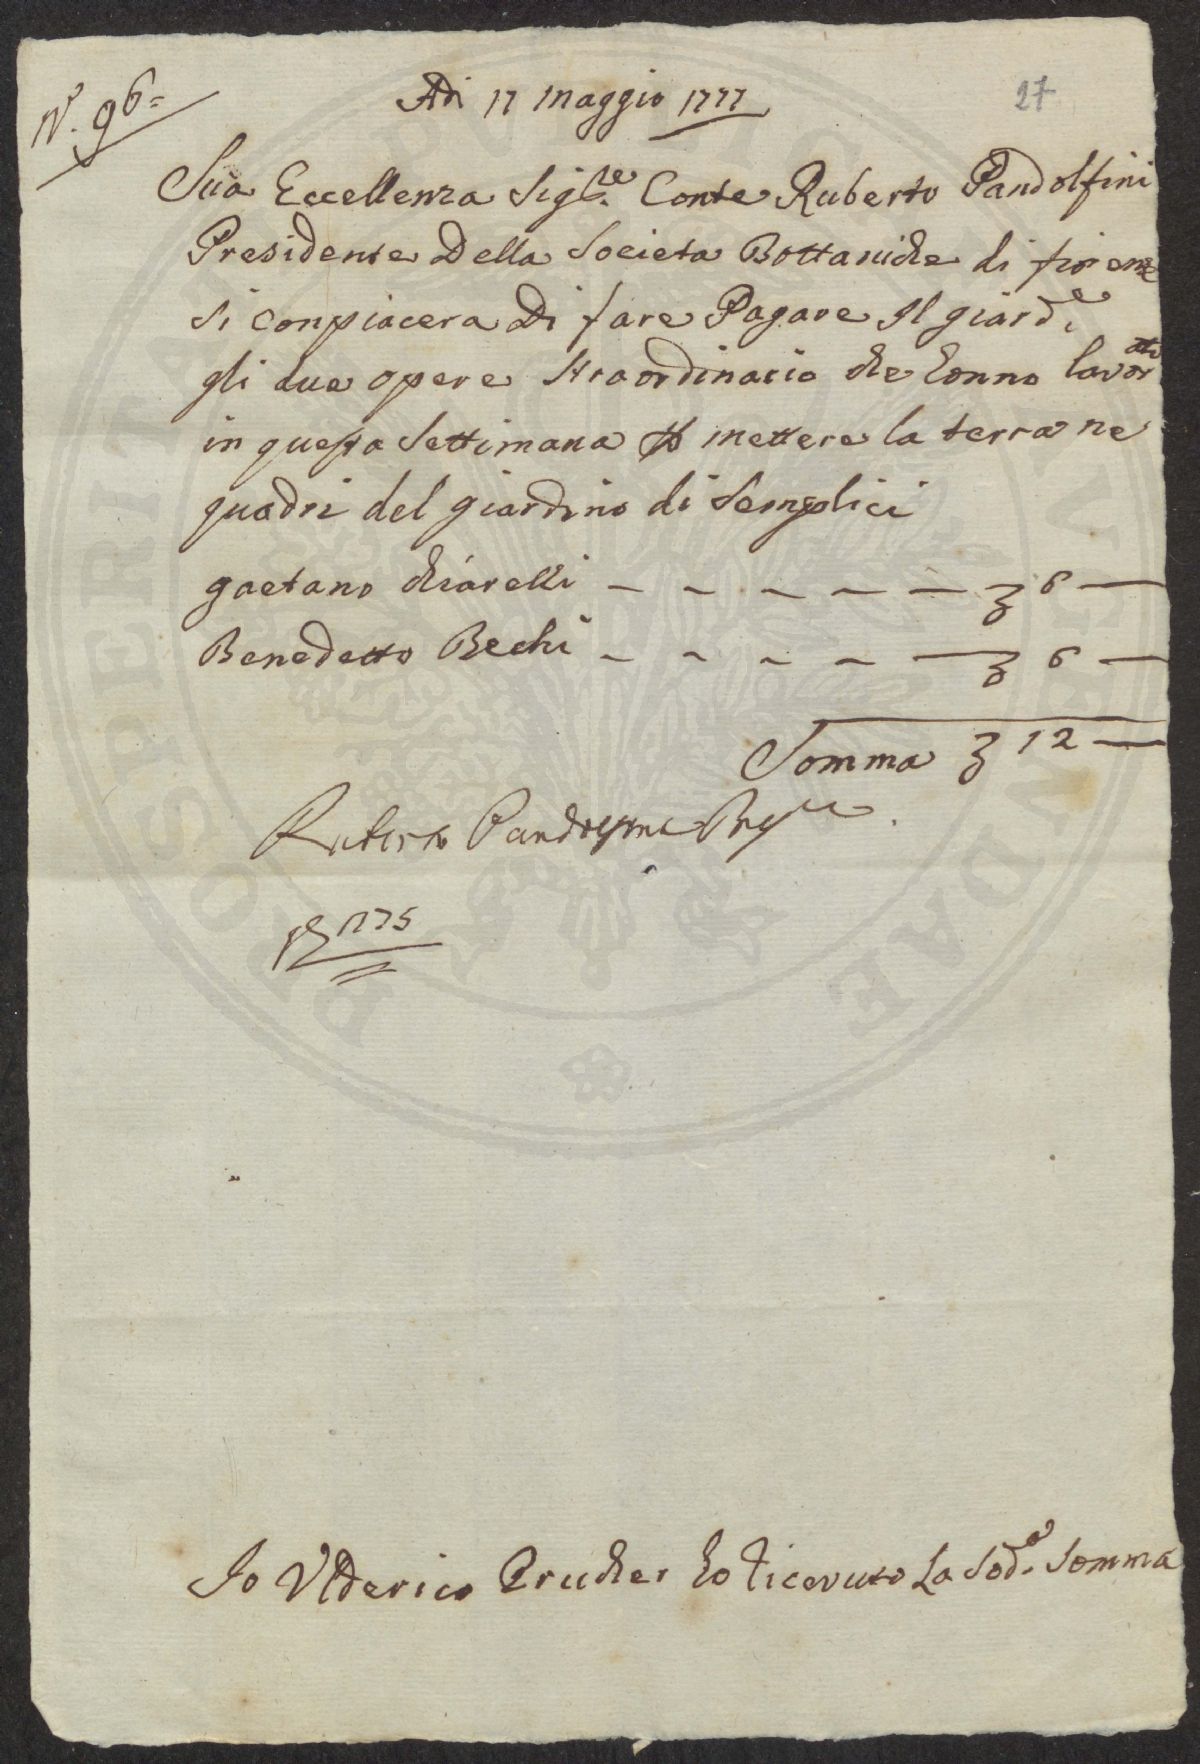 N.º 96=
Adi 17 Maggio 1777
27
Sua Eccellenza Sigl.re Conte Ruberto Pandolfini
Presidente Della Societa Bottaniche di fiorenze
si conpiacera Di fare Pagare Il giard.e
gli due opere straordinario che Conno lavoratto
in questa Settimana p mettere la terra ne
quadri del giardino di Semplici
gaetano chiarelli – – – – – 6 –
Benedetto Bechi – – – – – 6 –
Somma 12 –
Ruberto Pandolfini
1775
Io Vlderico Prucher ho ricevuto La Sod.a Somma
PROSPERITATI PUBLICAE AUGENDAE